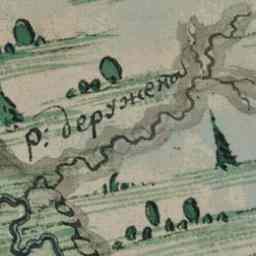 р: деружена